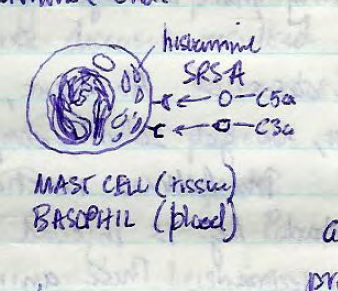 histamine
SRS-A
C5a
C3a
MAST CELL (tissue)
BASOPHIL (blood)